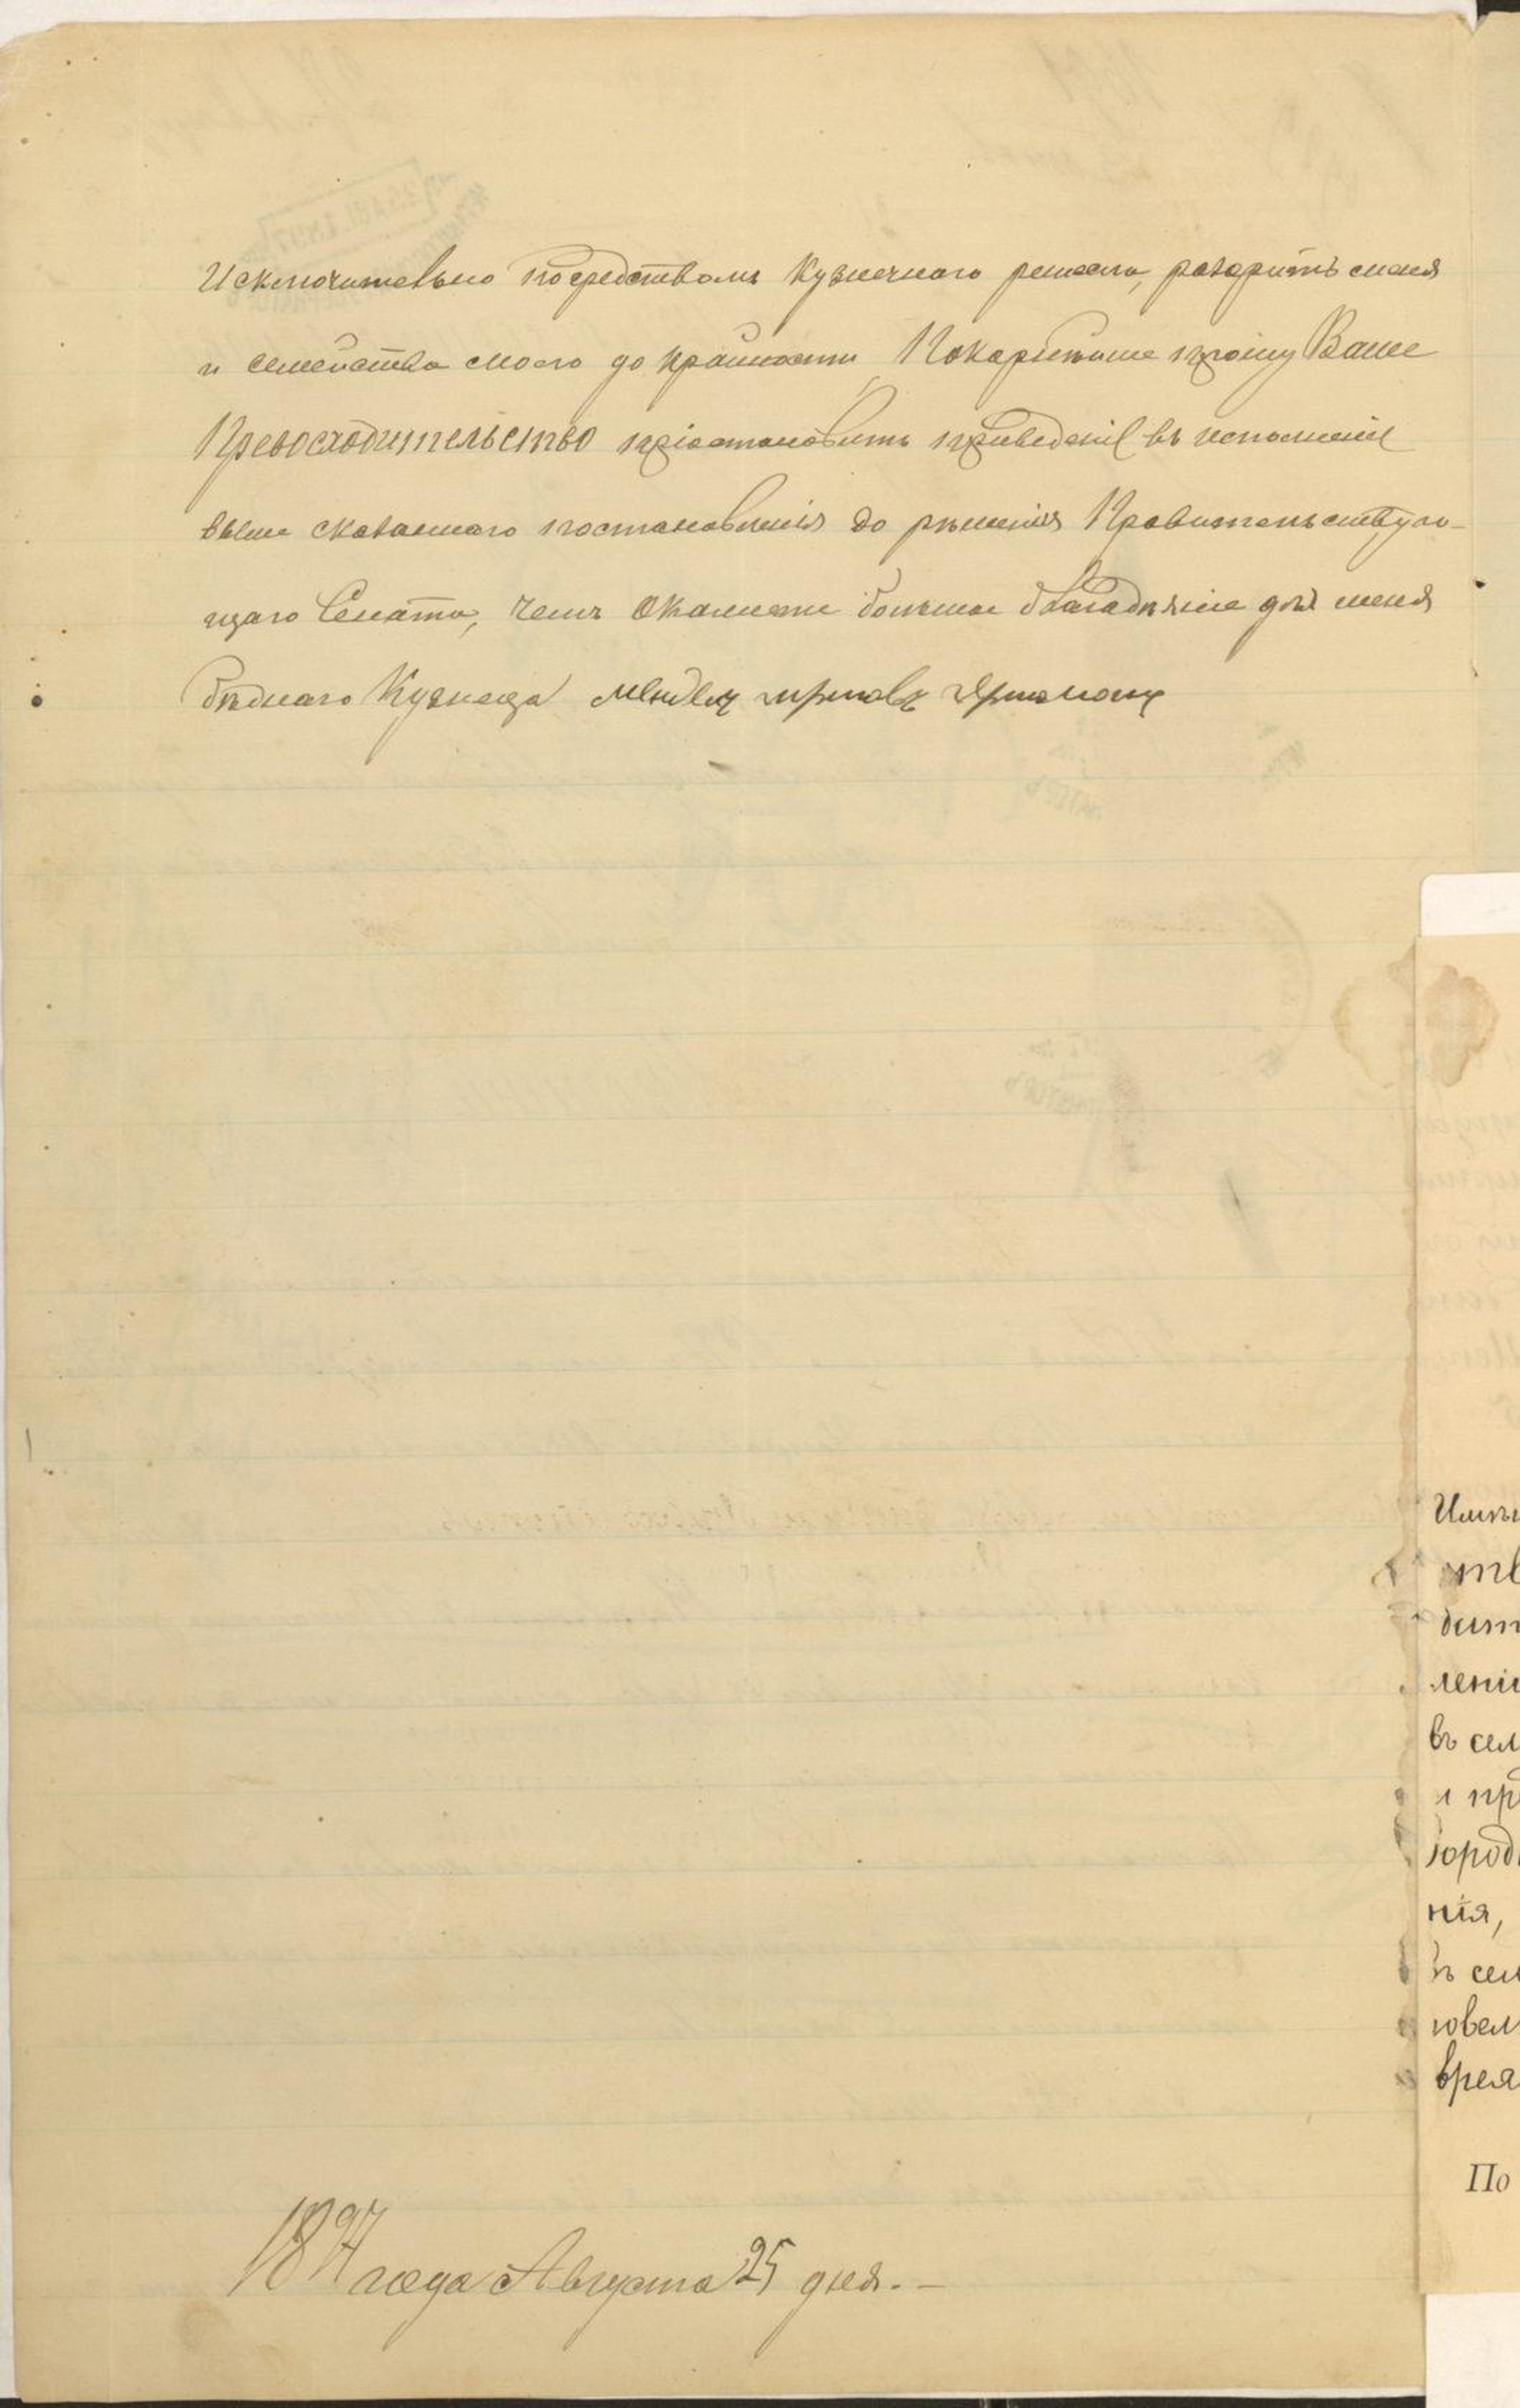 Исключительно посредствомъ Кузнечного ремесла, разаритъ меня
и семейства моего до крайности Покорнѣйше прошу Ваше
Превосходительство пріостановить приведеніе въ исполненіе
выше сказанного постановленія до рѣшенія Правительствую-
щаго Сената, чемъ окажете большое благадѣяніе для меня
бѣднаго Кузнеца Мендель
1897 года Августа 25 дня. —
Имѣ
ств
дит
лені
въ сел
и пр
город
нія,
въ сел
повел
врем
По